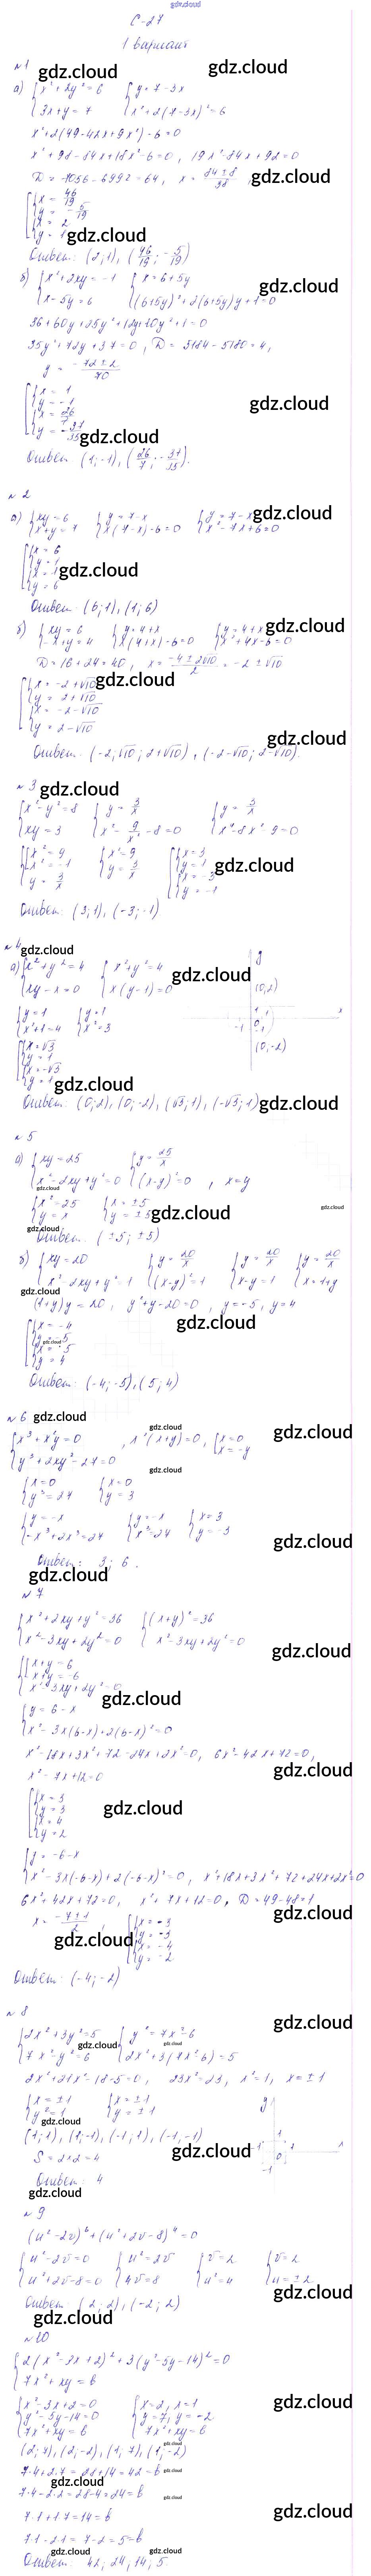 gdz.cloud
С-27
1 вариант
№1
а) { x² + 2y² = 6 { y = 7 - 3x
3x + y = 7 x² + 2(7-3x)² = 6
x² + 2(49 - 42x + 9x²) - 6 = 0
x² + 98 - 84x + 18x² - 6 = 0, 19x² - 84x + 92 = 0
D = 7056 - 6992 = 64, x = (84 ± 8)/38
x = 46/19
y = -5/19
x = 2
y = 1
Ответ: (2; 1), (46/19; -5/19)
б) { x² + 2xy = -1 { x = 6 + 5y
x - 5y = 6 (6+5y)² + 2(6+5y)y + 1 = 0
36 + 60y + 25y² + 12y + 10y² + 1 = 0
35y² + 72y + 37 = 0, D = 5184 - 5180 = 4,
y = (-72 ± 2)/70
x = 1
y = -1
x = 26/7
y = -37/35
Ответ: (1; -1), (26/7; -37/35).
№ 2
а) { xy = 6 { y = 7 - x { y = 7 - x
x + y = 7 x(7-x) - 6 = 0 x² - 7x + 6 = 0
x = 6
y = 1
x = 1
y = 6
Ответ: (6; 1), (1; 6)
б) { xy = 6 { y = 4 + x { y = 4 + x
-x + y = 4 x(4+x) - 6 = 0 x² + 4x - 6 = 0
D = 16 + 24 = 40, x = (-4 ± 2√10)/2 = -2 ± √10
x = -2 + √10
y = 2 + √10
x = -2 - √10
y = 2 - √10
Ответ: (-2+√10; 2+√10), (-2-√10; 2-√10).
№ 3
{ x² - y² = 8 { y = 3/x { y = 3/x
xy = 3 x² - 9/x² - 8 = 0 x⁴ - 8x² - 9 = 0
x² = 9 x² = 9 x = 3
x² = -1 y = 3/x y = 1
y = 3/x x = -3
y = -1
Ответ: (3; 1), (-3; -1)
№ 4
а) { x² + y² = 4 { x² + y² = 4
xy - x = 0 x(y-1) = 0
y = 1 y = 1
x² + 1 = 4 x² = 3
x = √3
y = 1
x = -√3
y = 1
y
(0, 2)
x
1
-1 0 1
(0, -2)
Ответ: (0; 2), (0; -2), (√3; 1), (-√3; 1)
№ 5
а) { xy = 25 { y = 25/x
x² - 2xy + y² = 0 (x-y)² = 0, x = y
x² = 25 x = ±5
y = x y = ±5
Ответ: (±5; ±5)
б) { xy = 20 { y = 20/x { y = 20/x { y = 20/x
x² - 2xy + y² = 1 (x-y)² = 1 x - y = 1 x = 1 + y
(1+y)y = 20, y² + y - 20 = 0, y = -5, y = 4
x = -4
y = -5
x = 5
y = 4
Ответ: (-4; -5), (5; 4)
№ 6
{ x³ + x²y = 0, x²(x+y) = 0, x = 0
y³ + 2xy² - 27 = 0 x = -y
x = 0 x = 0
y³ = 27 y = 3
y = -x y = -x x = 3
-x³ + 2x³ = 27 x³ = 27 y = -3
Ответ: 3; 6.
№ 7
{ x² + 2xy + y² = 36 { (x+y)² = 36
x² - 3xy + 2y² = 0 x² - 3xy + 2y² = 0
x + y = 6
x + y = -6
x² - 3xy + 2y² = 0
y = 6 - x
x² - 3x(6-x) + 2(6-x)² = 0
x² - 18x + 3x² + 72 - 24x + 2x² = 0, 6x² - 42x + 72 = 0,
x² - 7x + 12 = 0
x = 3
y = 3
x = 4
y = 2
y = -6 - x
x² - 3x(-6-x) + 2(-6-x)² = 0, x² + 18x + 3x² + 72 + 24x + 2x² = 0
6x² + 42x + 72 = 0, x² + 7x + 12 = 0, D = 49 - 48 = 1
x = (-7 ± 1)/2, x = -3
y = -3
x = -4
y = -2
Ответ: (-4; -2)
№ 8
{ 2x² + 3y² = 5 { y² = 7x² - 6
7x² - y² = 6 2x² + 3(7x² - 6) = 5
2x² + 21x² - 18 - 5 = 0, 23x² = 23, x² = 1, x = ±1
x = ±1 x = ±1
y² = 1 y = ±1
(1; 1), (1; -1), (-1; 1), (-1; -1)
S = 2·2 = 4
y
1
-1 0 1 x
-1
Ответ: 4
№ 9
(u² - 2v)⁶ + (u² + 2v - 8)⁴ = 0
{ u² - 2v = 0 { u² = 2v { v = 2 { v = 2
u² + 2v - 8 = 0 4v = 8 u² = 4 u = ±2
Ответ: (2; 2), (-2; 2)
№ 10
{ 2(x² - 3x + 2)² + 3(y² - 5y - 14)² = 0
7x² + xy = b
x² - 3x + 2 = 0 x = 2, x = 1
y² - 5y - 14 = 0 y = 7, y = -2
7x² + xy = b 7x² + xy = b
(2; 7), (2; -2), (1; 7), (1; -2)
7·4 + 2·7 = 28 + 14 = 42 = b
7·4 - 2·2 = 28 - 4 = 24 = b
7·1 + 1·7 = 14 = b
7·1 - 2·1 = 7 - 2 = 5 = b
Ответ: 42; 24; 14; 5.